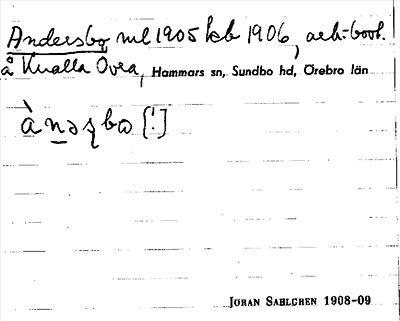 Andersbo ml 1905 kb 1906,
å Knalla Övra, Hammars sn, Sundbo hd, Örebro län
ànəʂbω [!]
JÖRAN SAHLGREN 1908-09